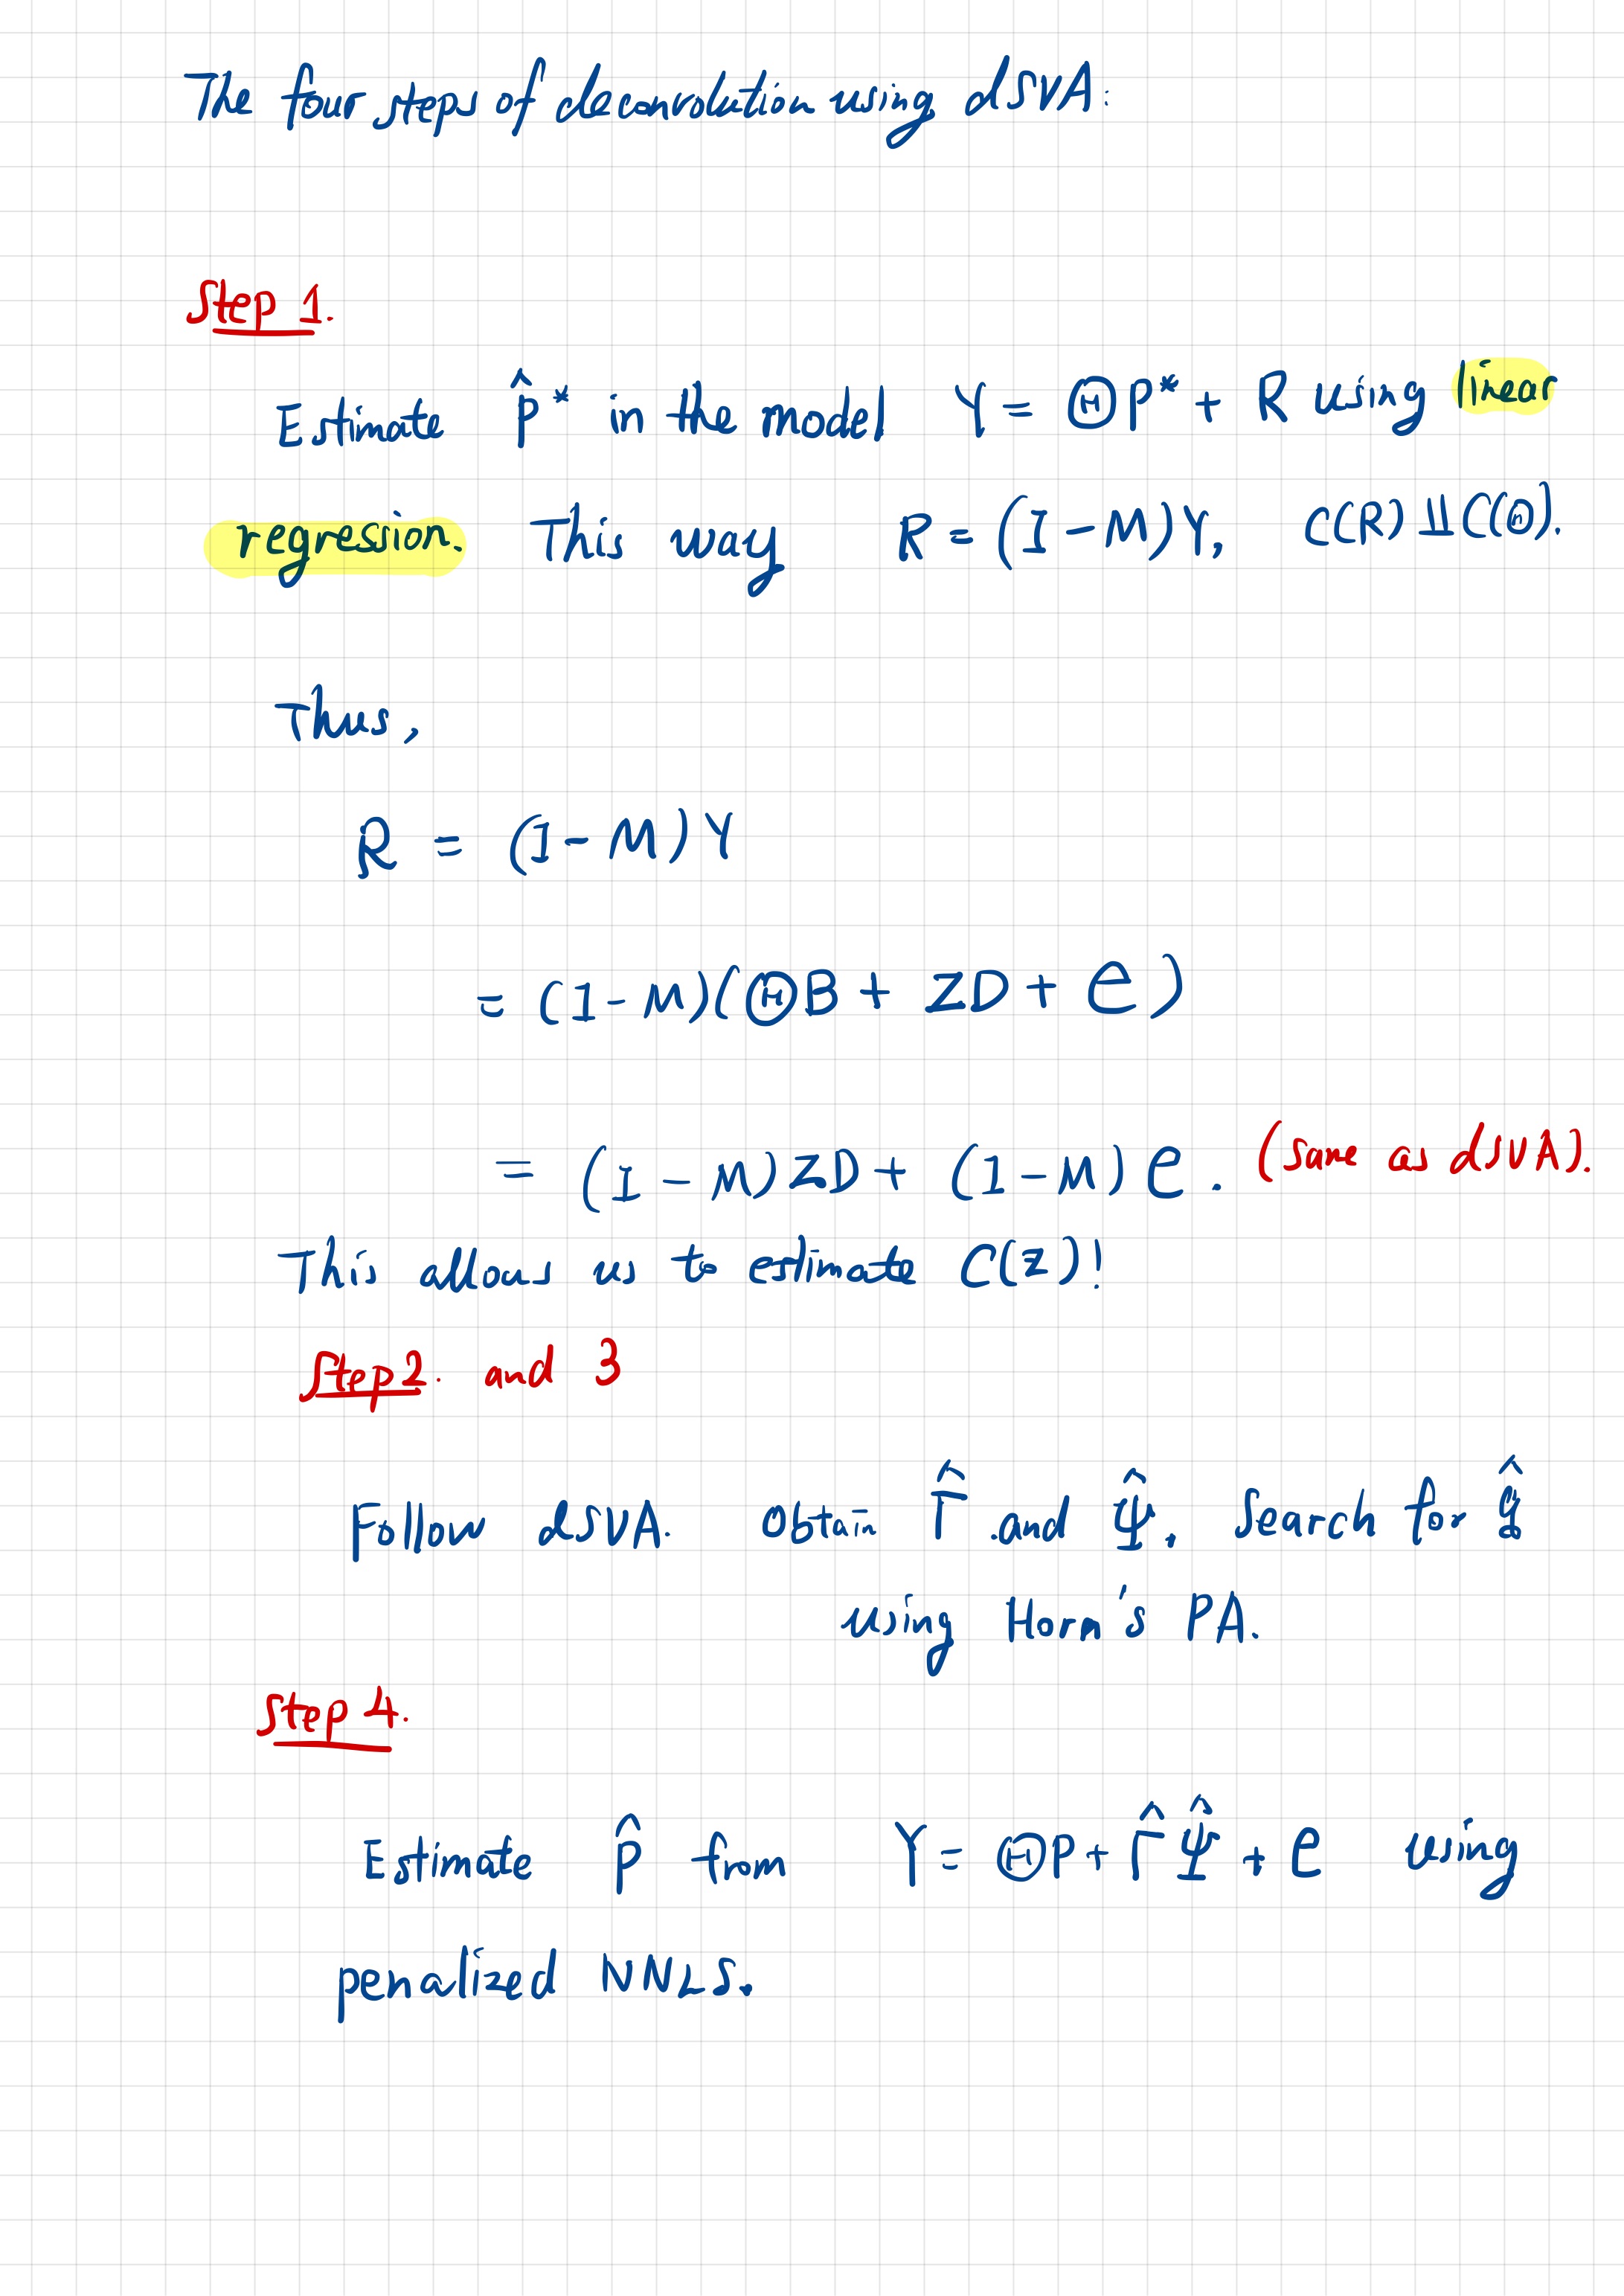 The four steps of deconvolution using dSVA:
Step 1.
Estimate P̂* in the model Y = ΘP* + R using linear
regression. This way R = (I-M)Y, C(R) ⫫ C(Θ).
Thus,
R = (I-M)Y
= (I-M)(ΘB + ZD + e)
= (I-M)ZD + (I-M)e. (same as dSVA).
This allows us to estimate C(Z)!
Step 2. and 3
Follow dSVA. Obtain Γ̂ and Ψ̂. Search for q̂
using Horn's PA.
Step 4.
Estimate P̂ from Y = ΘP + Γ̂Ψ̂ + e using
penalized NNLS.